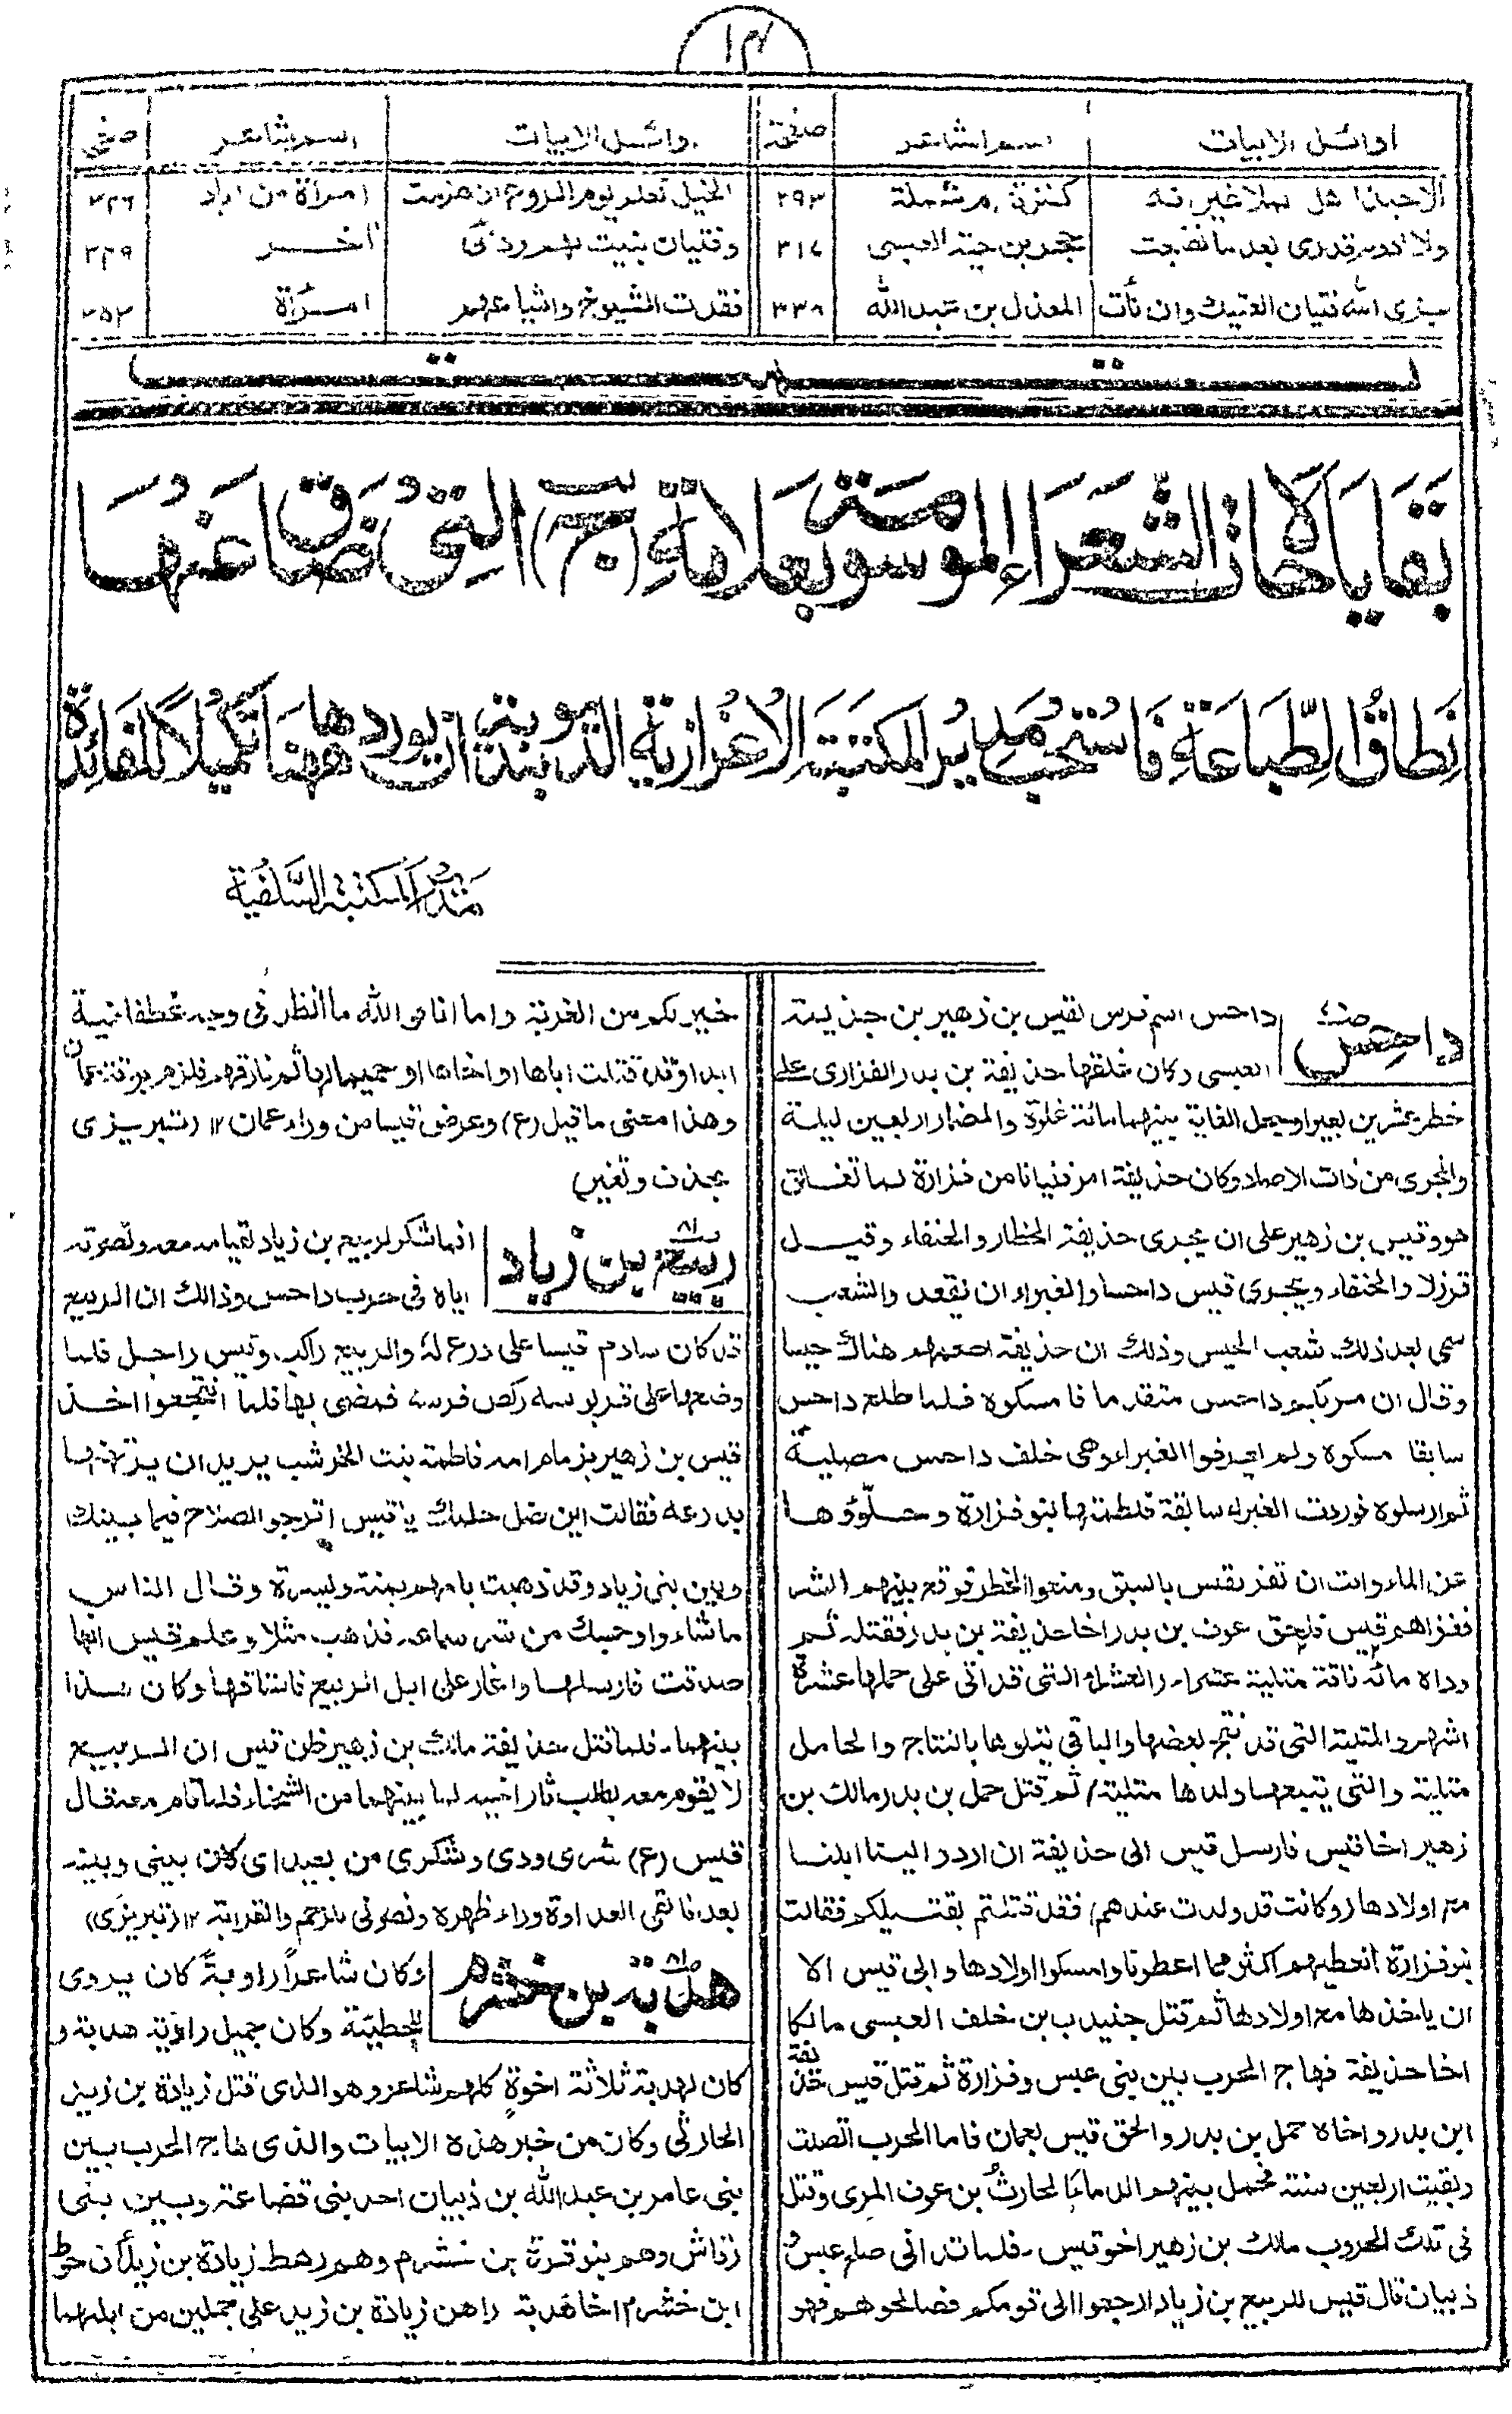 ١٣
اوائل الابيات اسم الشاعر صفحة اوائل الابيات اسم الشاعر صفحه
كنزة ام شملة ٢٩٣ الخيل تعلم يوم الروع ان هزمت امرأة من اياد ٣٢٦
ولا ادوم قدرى بعد ما نضجت حجر بن حية العبسى ٣١٧ وفتيان بنيت لهم ردائى اخر ٣٢٩
سنرى الله فتيان العتيك وان نأت المعذل بن عبد الله ٣٣٨ فقدت الشيوخ واشياعهم امرأة ٣٥٢
تمت
بَقَايَا الشُّعَرَاءِ الموسومة بعَلامَةِ (ج) الَّتِىْ ضَاقَ عَنْهَا
نِطَاقُ الطِّبَاعَةِ فَاسْتُحْسَنَ مُدِيرُ المكتَبَةِ الاعزازية الديوبندية ان يوردها ههنا تَكْمِيْلًا لِلفَائِدَة
مدير المكتبة السَّلَفية
داحس داحس اسم فرس لقيس بن زهير بن جذيمة
العبسى وكان خلقها حذيفة بن بدر الفزارى على
خطر عشرين بعيرا ويجعل الغاية بينهما مائة غلوة والمضمار اربعين ليلة
والمجرى من ذات الاصاد وكان حذيفة امر فتيانا من فزارة لما تفاق
هو وقيس بن زهير على ان يجرى حذيفة الخطار والحنفاء وقيل
قرزلا والحنفاء ويجرى قيس داحسا والغبراء ان تقعد والشعب
سمى بعد ذلك شعب الحيس وذلك ان حذيفة اطعمهم هناك حيسا
وقال ان مر بكم داحس متقدما فامسكوه فلما طلع داحس
سابقا مسكوه ولم يعرفوا الغبراء وهى خلف داحس مصلية
ثم ارسلوه فوردت الغبراء سابقة فلطمتها بنو فزارة وحلّؤوها
عن الماء وابت ان تقر بقيس بالسبق ومنعوا الخطر فوقع بينهم الشر
فغزاهم قيس فلحق عوف بن بدر اخا حذيفة بن بدر فقتله ثم
وداه مائة ناقة متلية عشراء والعشراء التى قد اتى على حملها عشرة
اشهر والمتلية التى قد نتج بعضها والباقى يتلوها بالنتاج والحامل
متلية والتى يتبعها ولدها متلية) ثم قتل حمل بن بدر مالك بن
زهير اخا قيس فارسل قيس الى حذيفة ان اردد الينا ابلنا
مع اولادها (وكانت قد ولدت عندهم) فقد قتلتم بقتيلكم فقالت
بنو فزارة انعطيهم اكثر مما اعطونا وامسكوا اولادها وابى قيس الا
ان ياخذها مع اولادها ثم قتل جنيدب بن خلف العبسى مالكا
اخا حذيفة فهاج الحرب بين بنى عبس وفزارة ثم قتل قيس حذيفة
ابن بدر واخاه حمل بن بدر والحق قيس بعمان فاما الحرب اتصلت
وبقيت اربعين سنة فحمل بينهم الدماء الحارث بن عوف المرى وقتل
فى تلك الحروب مالك بن زهير اخو قيس - فلما تدانى صلح عبس و
ذبيان قال قيس للربيع بن زياد ارجعوا الى قومكم فصالحوهم فهو
خير لكم من الغربة واما انا فوالله ما انظر فى وجه غطفانية
ابدا وقد قتلت اباها او اخاها او حميمها ثم فارقهم فلزم بعمان
وهذا معنى ما قيل (ع) وبعرض قيسا من وراء عمان ١٢ (تبريزى
بحذف وتغير)
ربيع بن زياد انما شكر لربيع بن زياد لقيامه معه ونصرته
اياه فى حرب داحس وذالك ان الربيع
قد كان ساوم قيسا على درع لهٗ والربيع راكب وقيس راجل فلما
وضعها على قربوسه ركض فرسه فمضى بها فلما انتجعوا اخذ
قيس بن زهير بزمام امه فاطمة بنت الخرشب يريد ان يرتهنها
بدرعه فقالت اين ضل حلمك يا قيس اترجو الصلاح فيما بينك
وبين بنى زياد وقد ذهبت بامهم يمنة ويسرة وقال الناس
ما شاءوا وحسبك من شر سماعه فذهب مثلا وعلم قيس انها
صدقت فارسلها واغار على ابل الربيع فاستاقها وكان هذا
بينهما - فلما قتل حذيفة مالك بن زهير ظن قيس ان الربيع
لا يقوم معه بطلب ثار اخيه لما بينهما من الشحناء فلما قام معه قال
قيس (ع) شرى ودى وشكرى من بعيد اى كان بينى وبينه
بعد فالقى العداوة وراء ظهره ونصرنى للرحم والقرابة ١٢ (تبريزى)
هدبة بن خشرم وكان شاعرًا راوية كان يروى
للحطيئة وكان جميل راوية هدبة و
كان لهدبة ثلاثة اخوة كلهم شاعر وهو الذى قتل زيادة بن زيد
الحارثى وكان من خبر هذه الابيات والذى هاج الحرب بين
بنى عامر بن عبد الله بن ذبيان احد بنى قضاعة وبين بنى
رقاش وهم بنو قرة بن خشرم وهم رهط زيادة بن زيد أن حوط
ابن خشرم اخا هدبة راهن زيادة بن زيد على جملين من ابلهما